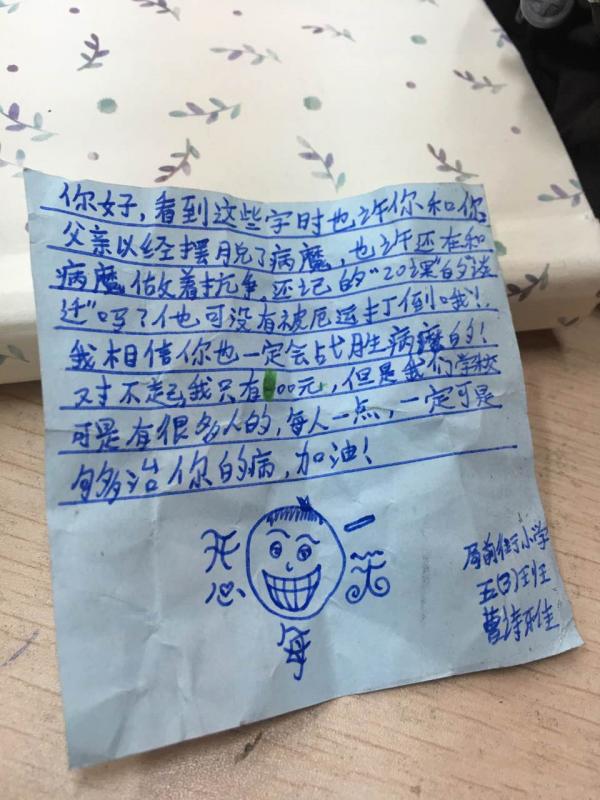 你好，看到这些字时也许你和你
父亲以经摆脱了病魔，也许还在和
病魔做着抗争。还记的“20课”的“谈
迁”吗？他可没有被厄运打倒哦！
我相信你也一定会战胜病魔的！
对不起我只有00元，但是我们学校
可是有很多人的，每人一点，一定可是
够治你的病，加油！
开心
每
一天
局前街小学
五(3)班
曹诗